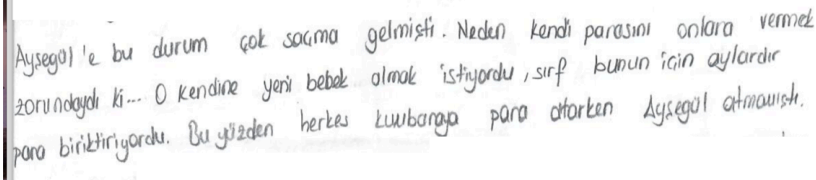 Ayşegül'e bu durum çok saçma gelmişti. Neden kendi parasını onlara vermek
zorundaydı ki... O kendine yeni bebek almak istiyordu, sırf bunun için aylardır
para biriktiriyordu. Bu yüzden herkes kumbaraya para atarken Ayşegül atmamıştı.